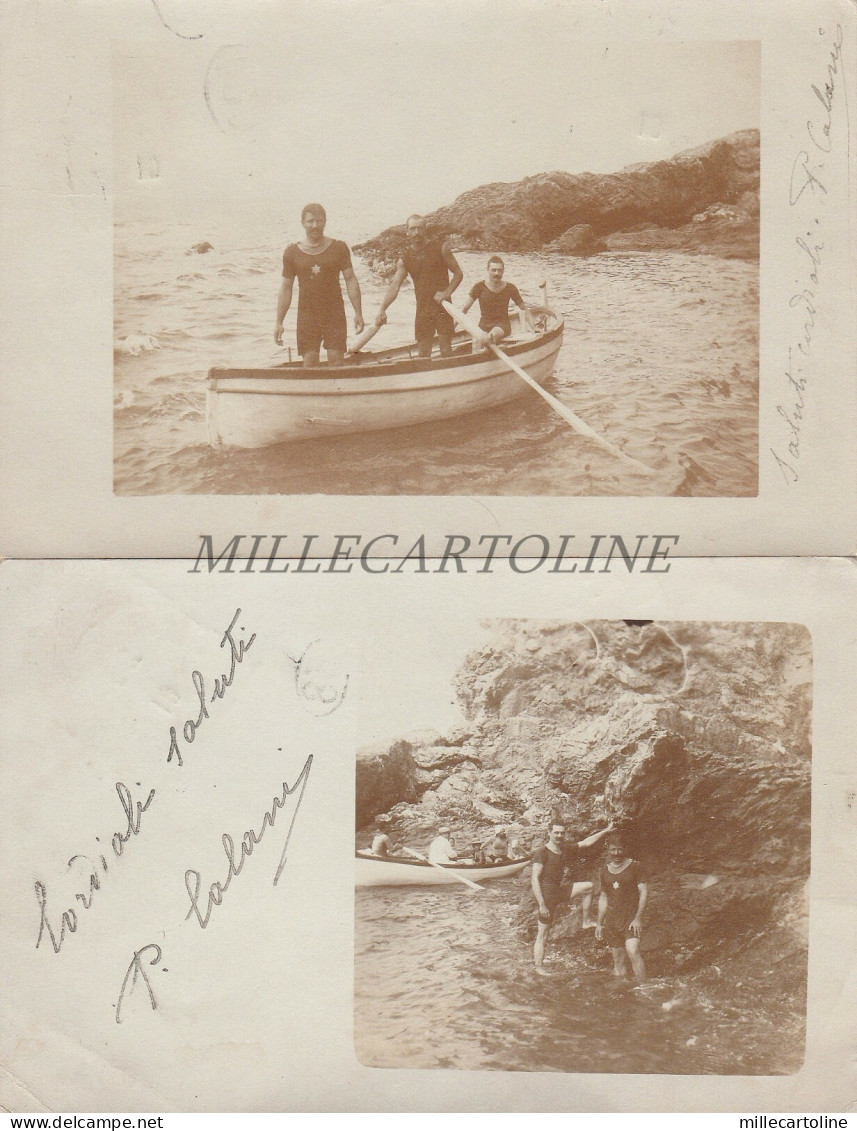 Saluti cordiali. P. Calani
MILLECARTOLINE
Cordiali saluti
P. Calani
millecartoline